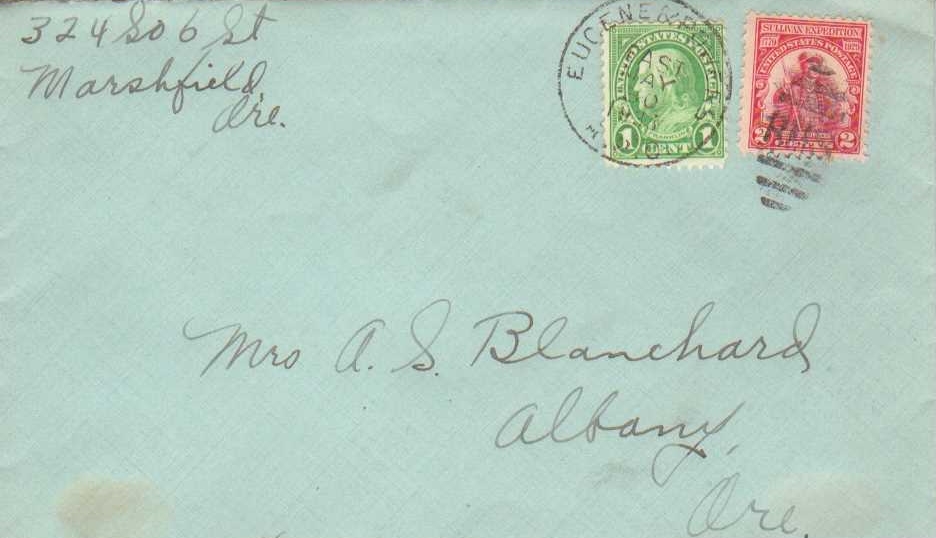 324 So 6 St
Marshfield,
Ore.
EUGENE &
EAST
1 CENT 1
UNITED STATES POSTAGE
SULLIVAN EXPEDITION
1779 1929
UNITED STATES POSTAGE
2 CENTS 2
Mrs A. S. Blanchard
Albany,
Ore.